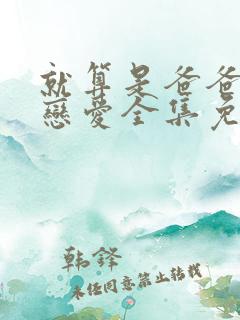 就算是爸爸
戀愛全集免
韩铎
未经同意禁止转载